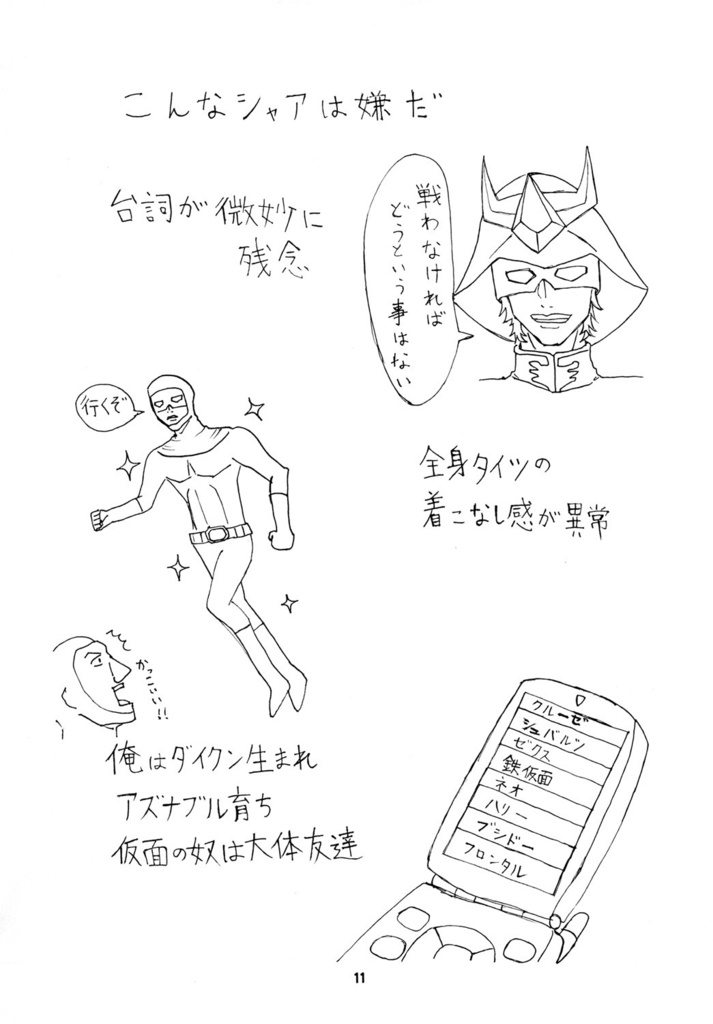 こんなシャアは嫌だ
台詞が微妙に
残念
戦わなければ
どうという事はない
行くぞ
全身タイツの
着こなし感が異常
かっこいい!!
俺はダイクン生まれ
アズナブル育ち
仮面の奴は大体友達
クルーゼ
シュバルツ
ゼクス
鉄仮面
ネオ
ハリー
ブシドー
フロンタル
11